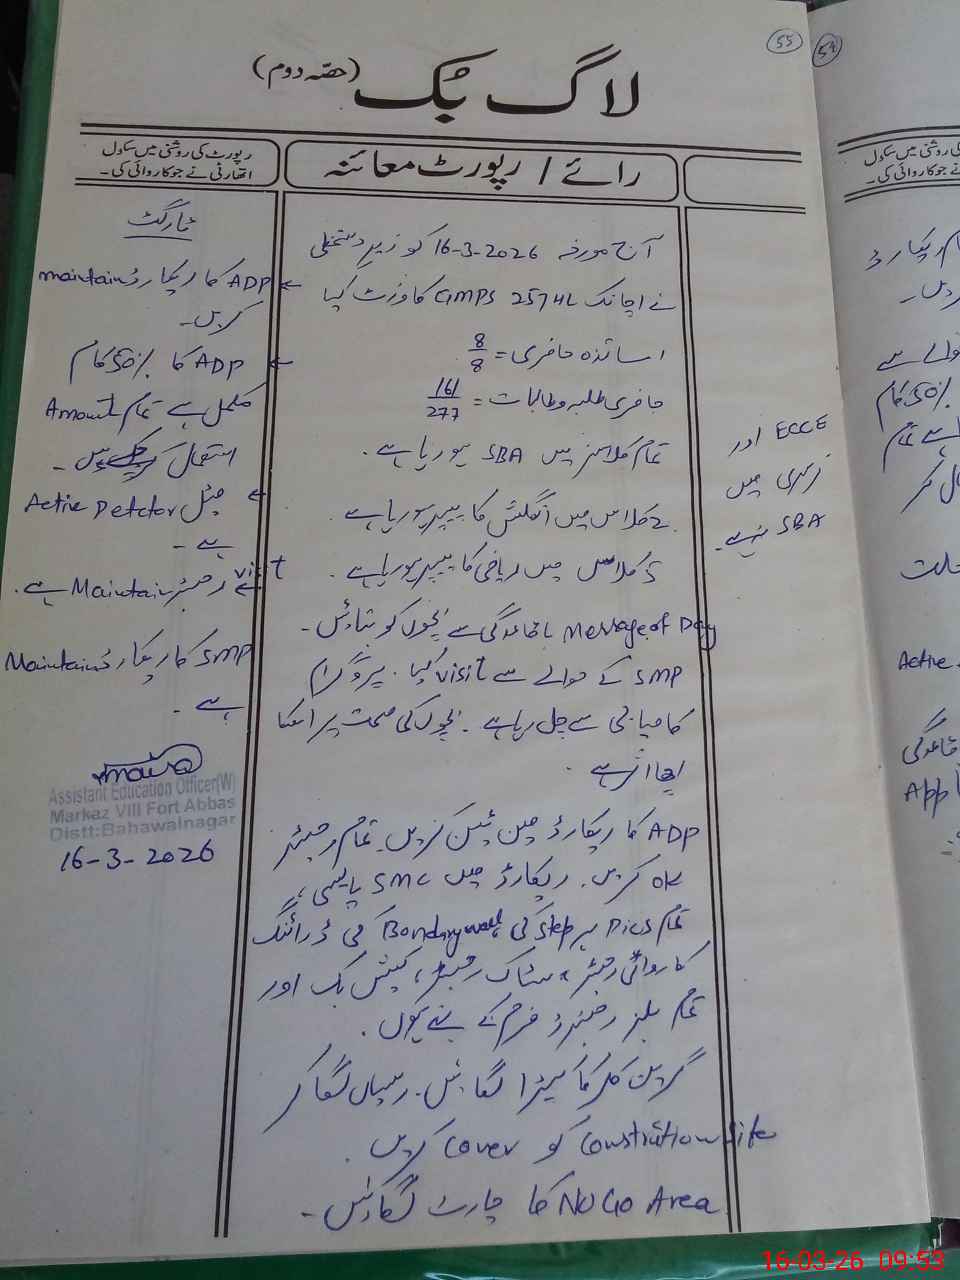 55
54
لاگ بُک (حصّہ دوم)
رپورٹ کی روشنی میں سکول
اتھارٹی نے جو کاروائی کی۔
رائے / رپورٹ معائنہ
آج مورخہ 16-3-2026 کو زیر دستخطی
نے اچانک GMPS 257HL کا وزٹ کیا
اساتذہ حاضری = 8/8
حاضری طلبہ و طالبات = 161/277
تمام کلاسز میں SBA ہو رہا ہے۔
2 کلاس میں انگلش کا پیپر ہو رہا ہے۔
5 کلاس میں ریاضی کا پیپر ہو رہا ہے۔
Message of Day باقاعدگی سے بچوں کو بتائیں۔
SMP کے حوالے سے visit کیا۔ پروگرام
کامیابی سے چل رہا ہے۔ بچوں کی صحت پر اسکا
اچھا اثر ہے۔
ADP کا ریکارڈ مین ٹین کریں۔ تمام رجسٹر
ok کریں۔ ریکارڈ میں SMC پالیسی،
تمام Pics ہر Step کی، Bondary wall کی ڈرائنگ
کاروائی رجسٹر، سٹاک رجسٹر، کیش بک اور
تمام بلز رجسٹرڈ فرم کے بنے ہوں۔
گرین کلر کا کپڑا لگائیں۔ رسیاں لگا کر
Constrution Site کو Cover کریں۔
NO Go Area کا چارٹ لگائیں۔
ECCE اور
نرسری میں
SBA نہیں ہے۔
ٹارگٹ
ADP کا ریکارڈ maintain
کریں۔
ADP کا 50% کام
مکمل ہے تمام Amount
استعمال کریں۔
میٹل Detctor Active
ہے۔
visit رجسٹر Maintain ہے۔
SMP کا ریکارڈ Maintain
ہے۔
Assistant Education Officer(W)
Markaz VIII Fort Abbas
Distt:Bahawalnagar
16-3-2026
16-03-26 09:53